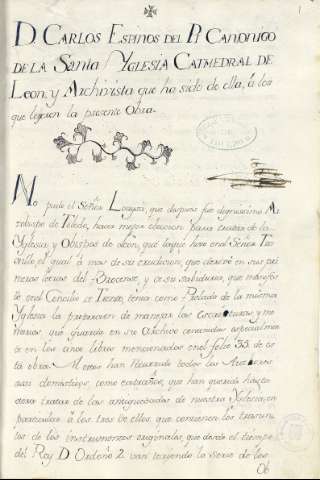 1
D. CARLOS ESPINOS DEL Pº CANONIGO
DE LA Santa YGLESIA CATHEDRAL DE
Leon, y Archivista que ha sido de ella, à los
que leyeren la presente Obra.
No pudo el Señor Loaysa, que despues fue dignissimo Ar
zobispo de Toledo, hacer mejor eleccion para tratar de la
Yglesia, y Obispos de Leon, que la que hizo en el Señor Tru
xillo, el qual à mas de su erudicion, que
meras letras del Diocense, y de su sabiduria, que manifes
tò en el Concilio de Trento, tenia como Prelado de la misma
Yglesia la proporcion de manejar las Escrituras, y mo
numentos que guarda en su Archivo
te en los once libros mencionados en el folio 33. de es
ta obra. A otros han llegado todos los Autores
tan demasiado, como estraños, que han querido hasta
aora tratar de las antiguedades de nuestra Yglesia, en
particular à los tres de ellos que contienen los transun
tos de los instrumentos originales, que desde el tiempo
del Rey D. Ordoño 2. van texiendo la serie de los
Ob